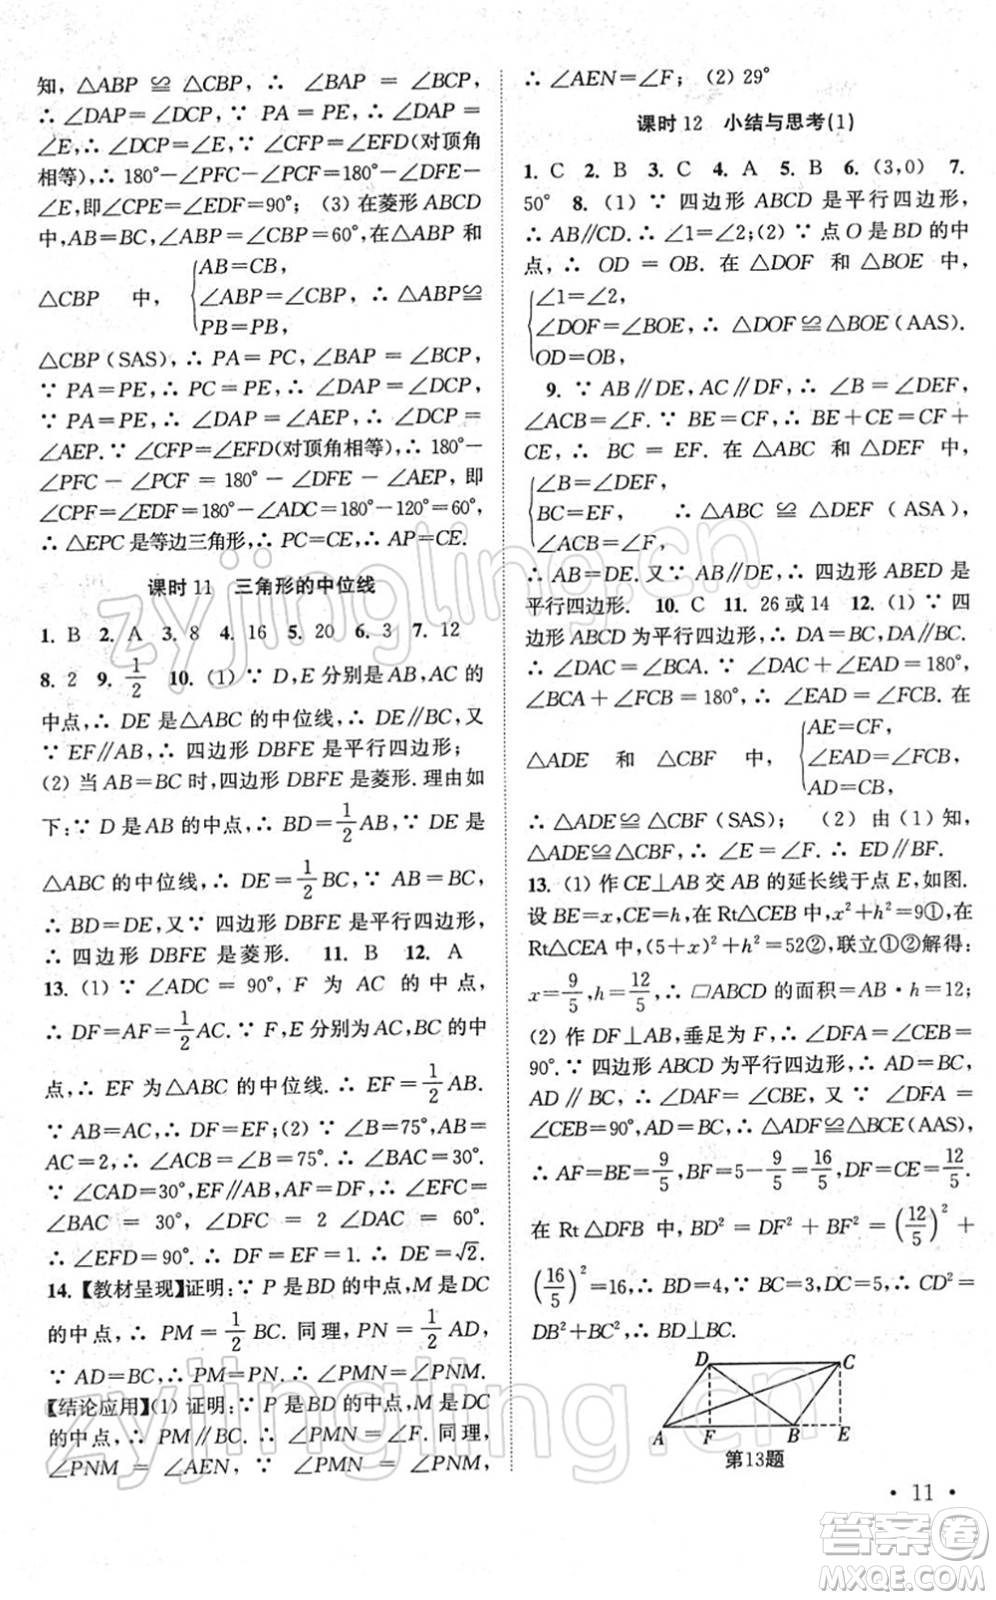 知, △ABP ≌ △CBP, ∴ ∠BAP = ∠BCP,
∴ ∠DAP=∠DCP, ∵ PA=PE, ∴ ∠DAP=
∠E, ∴ ∠DCP=∠E, ∵ ∠CFP=∠EFD(对顶角
相等), ∴ 180°－∠PFC－∠PCF=180°－∠DFE－
∠E,即∠CPE=∠EDF=90°; (3) 在菱形 ABCD
中,AB=BC,∠ABP=∠CBP=60°,在△ABP 和
AB=CB,
△CBP 中, ∠ABP=∠CBP, ∴ △ABP≌
PB=PB,
△CBP (SAS), ∴ PA=PC, ∠BAP=∠BCP,
∵ PA=PE, ∴ PC=PE, ∴ ∠DAP=∠DCP,
∵ PA=PE, ∴ ∠DAP=∠AEP, ∴ ∠DCP=
∠AEP.∵ ∠CFP=∠EFD(对顶角相等),∴ 180°－
∠PFC － ∠PCF = 180° － ∠DFE － ∠AEP, 即
∠CPF=∠EDF=180°－∠ADC=180°－120°=60°,
∴ △EPC 是等边三角形, ∴ PC=CE, ∴ AP=CE.
课时 11 三角形的中位线
1. B 2. A 3. 8 4. 16 5. 20 6. 3 7. 12
8. 2 9. 1/2 10. (1) ∵ D,E 分别是 AB,AC 的
中点,∴ DE 是△ABC 的中位线,∴ DE∥BC,又
∵ EF∥AB, ∴ 四边形 DBFE 是平行四边形;
(2) 当 AB=BC 时,四边形 DBFE 是菱形. 理由如
下:∵ D 是 AB 的中点,∴ BD=1/2AB,∵ DE 是
△ABC 的中位线, ∴ DE=1/2BC, ∵ AB=BC,
∴ BD=DE,又∵ 四边形 DBFE 是平行四边形,
∴ 四边形 DBFE 是菱形. 11. B 12. A
13. (1) ∵ ∠ADC = 90°, F 为 AC 的中点,
∴ DF=AF=1/2AC. ∵ F,E 分别为 AC,BC 的中
点,∴ EF 为△ABC 的中位线.∴ EF=1/2AB.
∵ AB=AC, ∴ DF=EF;(2) ∵ ∠B=75°,AB=
AC=2,∴ ∠ACB=∠B=75°. ∴ ∠BAC=30°.
∵ ∠CAD=30°,EF∥AB,AF=DF,∴ ∠EFC=
∠BAC = 30°, ∠DFC = 2 ∠DAC = 60°.
∴ ∠EFD=90°. ∴ DF=EF=1. ∴ DE=√2.
14.【教材呈现】证明:∵ P 是 BD 的中点,M 是 DC
的中点, ∴ PM=1/2BC. 同理, PN=1/2AD,
∵ AD=BC, ∴ PM=PN. ∴ ∠PMN=∠PNM.
【结论应用】(1) 证明:∵ P 是 BD 的中点,M 是 DC
的中点,∴ PM∥BC, ∴ ∠PMN=∠F. 同理,
∠PNM = ∠AEN, ∵ ∠PMN = ∠PNM,
∴ ∠AEN=∠F; (2) 29°
课时 12 小结与思考(1)
1. C 2. B 3. C 4. A 5. B 6. (3,0) 7.
50° 8. (1) ∵ 四边形 ABCD 是平行四边形,
∴ AB∥CD.∴ ∠1=∠2;(2) ∵ 点 O 是 BD 的中
点, ∴ OD = OB. 在 △DOF 和 △BOE 中,
∠1=∠2,
∠DOF=∠BOE, ∴ △DOF≌△BOE (AAS).
OD=OB,
9. ∵ AB∥DE,AC∥DF, ∴ ∠B = ∠DEF,
∠ACB=∠F. ∵ BE=CF,∴ BE＋CE=CF＋
CE, ∴ BC = EF. 在 △ABC 和 △DEF 中,
∠B=∠DEF,
BC=EF, ∴ △ABC ≌ △DEF (ASA),
∠ACB=∠F,
∴ AB=DE. ∵ AB∥DE, ∴ 四边形 ABED 是
平行四边形. 10. C 11. 26 或 14 12. (1) ∵ 四
边形 ABCD 为平行四边形,∴ DA=BC,DA∥BC.
∴ ∠DAC=∠BCA. ∵ ∠DAC＋∠EAD=180°,
∠BCA＋∠FCB=180°,∴ ∠EAD=∠FCB. 在
AE=CF,
△ADE 和 △CBF 中, ∠EAD=∠FCB,
AD=CB,
∴ △ADE≌△CBF (SAS); (2) 由(1)知,
△ADE≌△CBF, ∴ ∠E=∠F. ∴ ED∥BF.
13. (1) 作 CE⊥AB 交 AB 的延长线于点 E,如图.
设 BE=x,CE=h,在 Rt△CEB 中,x²＋h²=9①,在
Rt△CEA 中,(5＋x)²＋h²=52②,联立①②解得:
x=9/5,h=12/5,∴ ▱ABCD 的面积=AB·h=12;
(2) 作 DF⊥AB,垂足为 F,∴ ∠DFA=∠CEB=
90°.∵ 四边形 ABCD 为平行四边形,∴ AD=BC,
AD∥BC, ∴ ∠DAF=∠CBE, 又∵ ∠DFA =
∠CEB=90°,AD=BC,∴ △ADF≌△BCE(AAS),
∴ AF=BE=9/5,BF=5－9/5=16/5,DF=CE=12/5.
在 Rt△DFB 中, BD²=DF²＋BF²=(12/5)²＋
(16/5)²=16,∴ BD=4,∵ BC=3,DC=5,∴ CD²=
DB²＋BC²,∴ BD⊥BC.
D C
A F B E
第13题
• 11 •
zyjingling.cn
zyjingling.cn
答案圈
MXQE.COM